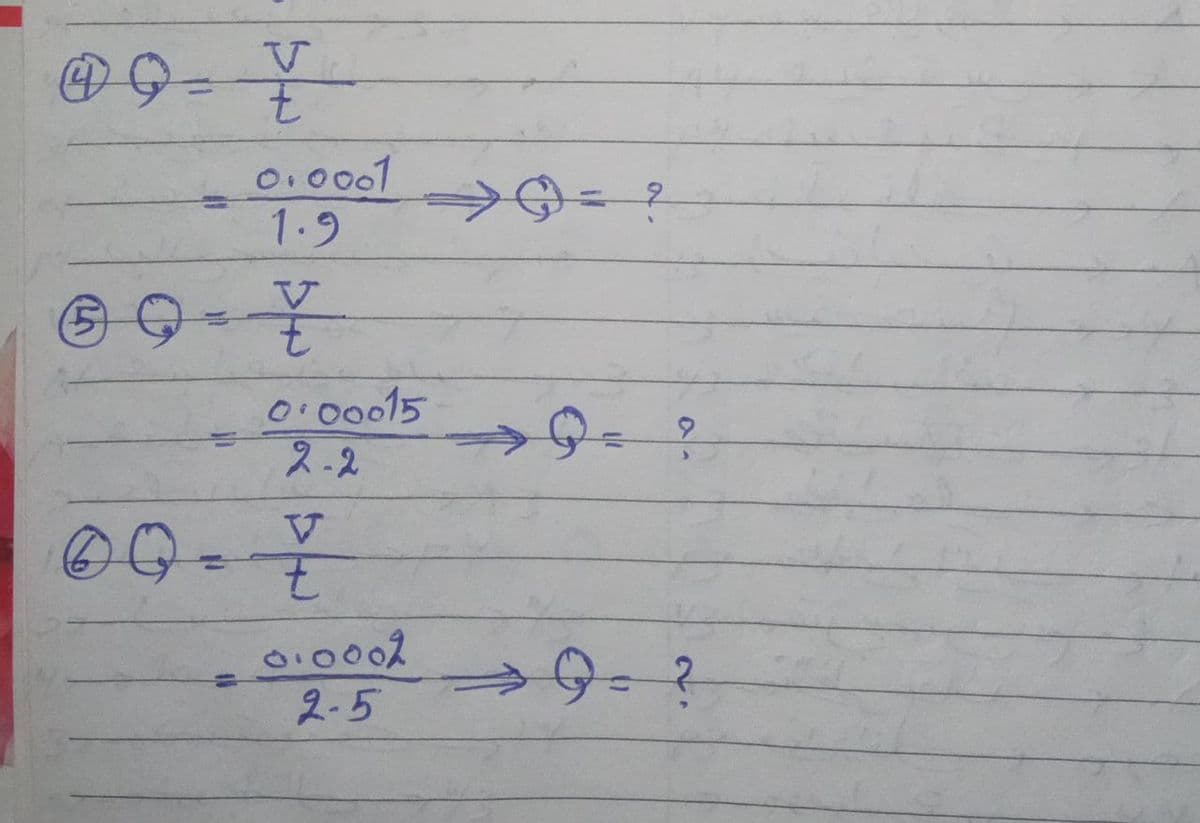 ④ Q = V/t
= 0.0001/1.9 ⇒ Q = ?
⑤ Q = V/t
= 0.00015/2.2 ⇒ Q = ?
⑥ Q = V/t
= 0.0002/2.5 ⇒ Q = ?